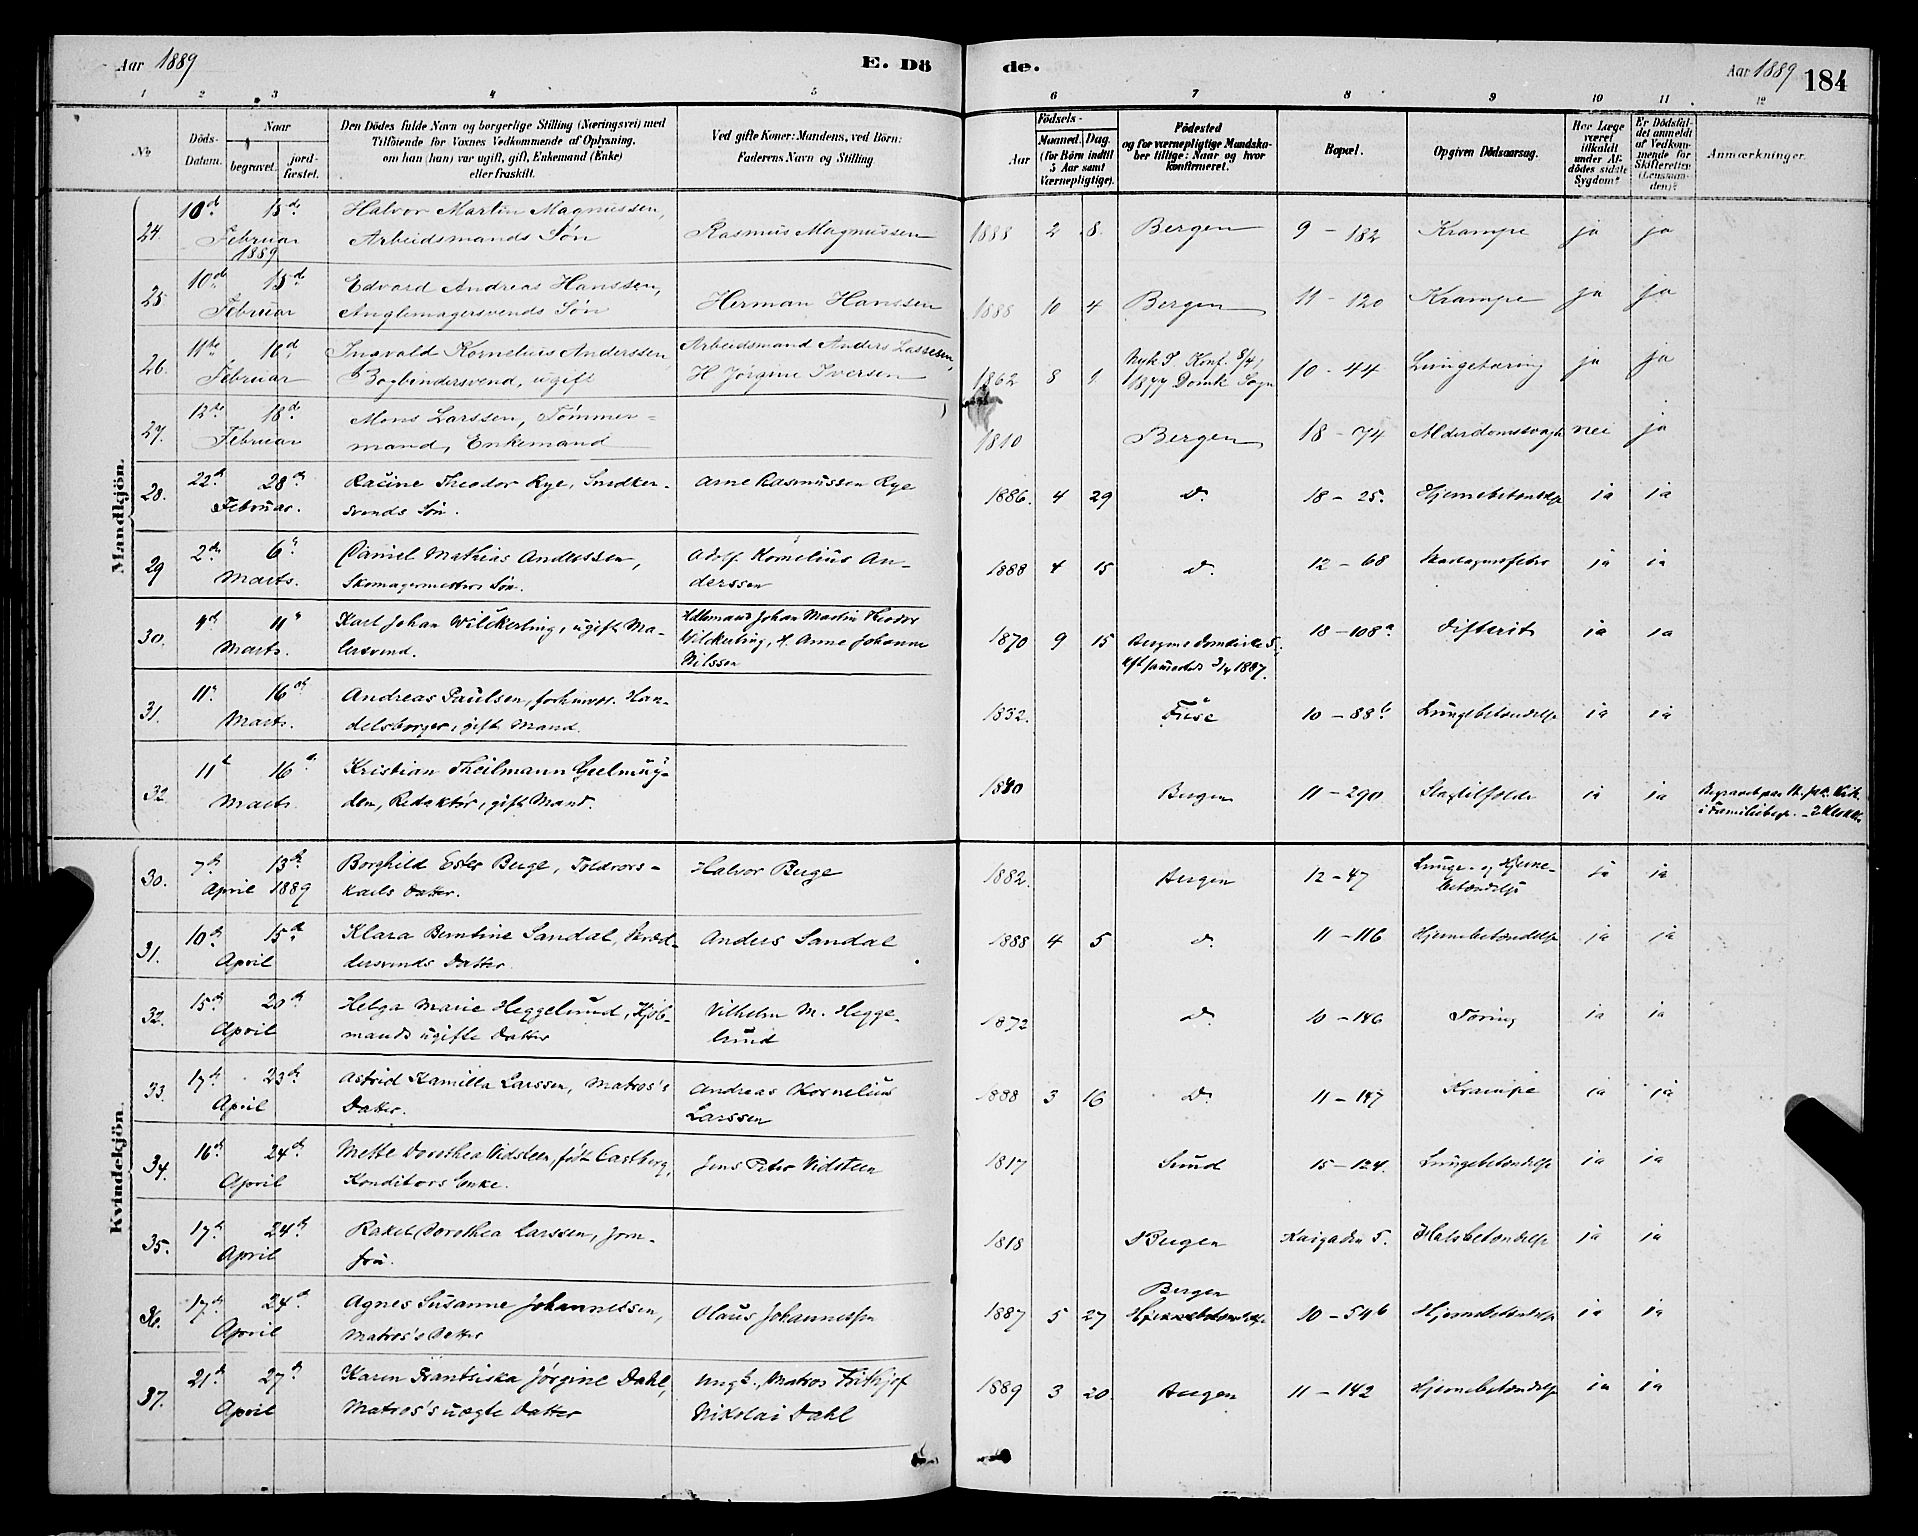 Aar 1889
E. Dö
de.
Aar 1889
184
1 2 3 4 5 6 7 8 9 10 11 12
No
Döds-
Datum.
Naar
begravet.
jord-
fæstet.
Den Dödes fulde Navn og borgerlige Stilling (Næringsvei) med
Tilföiende for Voxnes Vedkommende af Oplysning,
om han (hun) var ugift, gift, Enkemand (Enke)
eller fraskilt.
Ved gifte Koner: Mandens, ved Börn:
Faderens Navn og Stilling
Födsels-
Aar
Maaned. Dag.
(for Börn indtil
5 Aar samt
Værnepligtige).
Födested
og for værnepligtige Mandska-
ber tillige: Naar og hvor
konfirmeret.
Bopæl.
Opgiven Dödsaarsag.
Har Læge
været
tilkaldt
under Af-
dödes sidste
Sygdom?
Er Dödsfal-
det anmeldt
af Vedkom-
mende for
Skifteretten
(Lensman-
den)?
Anmærkninger.
Mandkjön.
24. 10de 15de Februar 1889 Halvor Martin Magnussen,
Arbeidsmands Søn Rasmus Magnussen 1888 2 8. Bergen 9 - 182 Krampe ja ja
25 10de 15de Februar Edvard Andreas Hanssen,
Søn Herman Hanssen 1888 10 4 Bergen 11 - 120 Krampe ja ja
26. 11te 16de Februar Ingvald Kornelius Anderssen, Arbeidsmand Anders Lassesen,
Bogbindersvend, ugift H Jörgine Iversen 1862 8 Nyk. S. Konf. 8/4
1877 Domk Sogn 10 - 44 Lungetæring ja ja
27. 12te 18de Februar Mons Larssen, Tömmer-
mand, Enkemand 1810 Bergen 18 - 74 Alderdomssvagh nei ja
28. 22de 28de Februar. Racine Theodor Rye, Snedker-
svends Søn. Arne Rasmussen Rye 1886. 4 29 D. 18 - 25. Hjernebetændelse ja ja
29 2den 6te Marts. Daniel Mathias Anderssen,
Skomagermesters Søn. Adolf Kornelius An-
derssen 1888 4 15 D. 12 - 68 Skarlagensfeber ja ja
30. 11te Marts. Karl Johan Wilckerling, ugift Ma-
lersvend. Johan Martin Theodor
Wilckerling, H. Anne Johanne
Nilssen 1870 9 15 Bergen Domkirke S.,
1887. 18 - 108a Difterit ja ja
31. 11te 16de Marts. Andreas Paulsen, forhenvær. Han-
delsborger, gift Mand. 1832. Fuse 10 - 88b Lungebetændelse ja ja
32. 11te 16de Marts. Kristian Theilmann Geelmuy-
den, Redaktør, gift Mand. Bergen 11 - 290 Slagtilfælde ja ja i Familiebegr.
Kvindekjön
30. 7de 13de April 1889 Borghild Ester Berge, Toldrors-
karls Datter. Halvor Berge 1882. Bergen 12 - 47 Lunge- og Hjerne-
betændelse ja ja
31. 10de 15de April Klara Berntine Sandal, Skræd-
dersvends Datter. Anders Sandal 1888 4 5 D. 11 - 116 Hjernebetændelse ja ja
32. 15de 20de April Helga Marie Heggelund, Kjøb-
mands ugifte Datter Vilhelm M. Hegge-
lund 1872 D. 10 - 146 Tæring ja ja
33. 17de 23de April Astrid Kamilla Larssen, Matros's
Datter. Andreas Kornelius
Larssen 1888 3 16 D. 11 - 147 Krampe ja ja
34. 16de 24de April Mette Dorothea Vidsteen, født Castberg,
Konditors Enke. Jens Peter Vidsteen 1817 Sund 15 - 124. Lungebetændelse ja ja
35. 17de 24de April Rakel Dorothea Larssen, Jom-
fru. 1818 Bergen Kaigaden 5. Halsbetændelse ja ja
36. 17de 24de April Agnes Susanne Johannessen,
Matros's Datter Olaus Johannessen 1887 5 27 Bergen
Hjernebetændelse 10 - 54b Hjernebetændelse ja ja
37. 21de 27de April Karen Frantsiska Jørgine Dahl,
Matros's uægte Datter Ungk., Matros Frithjof
Nikolai Dahl 1889 3 20. Bergen 11 - 142 Hjernebetændelse ja ja